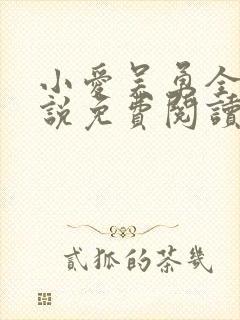 小愛吴勇全
說免費閱讀
貳狐的茶幾